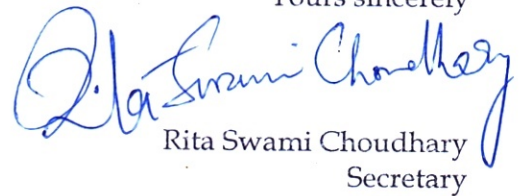 Yours sincerely
Rita Swami Choudhary
Rita Swami Choudhary
Secretary